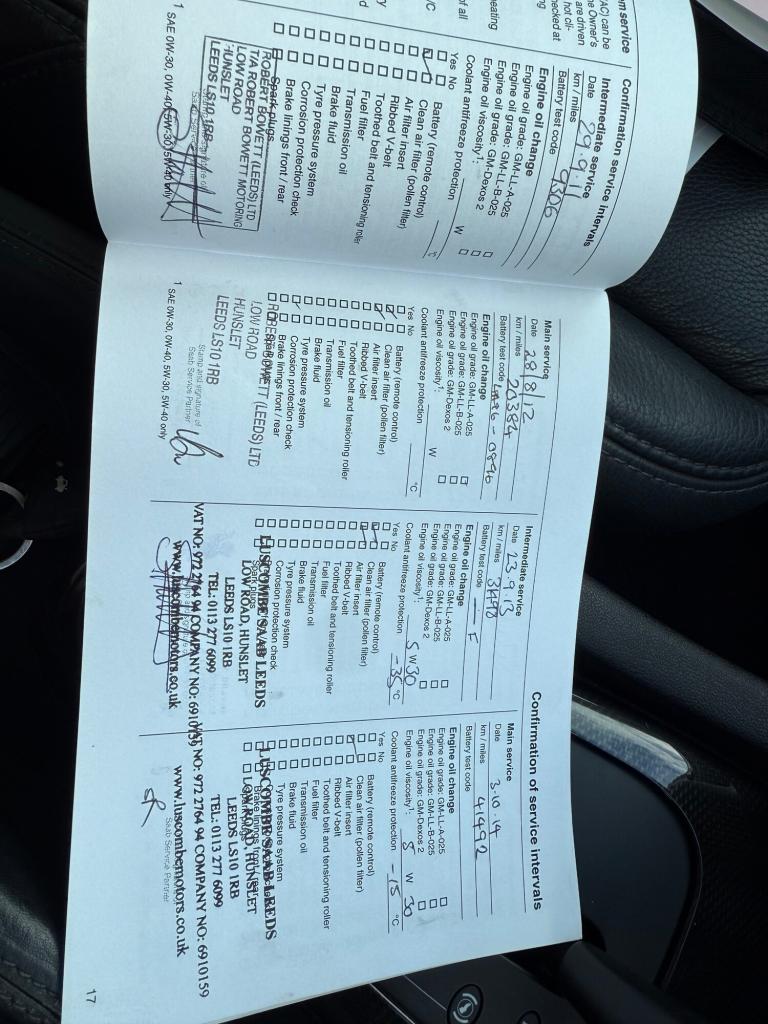 m service
(AC) can be
e Owner's
are driven
hot cli-
ecked at
ng
eating
of all
Confirmation service intervals
Intermediate service
Date 29.9.11
km / miles 9306
Battery test code
Engine oil change
Engine oil grade: GM-LL-A-025
Engine oil grade: GM-LL-B-025
Engine oil grade: GM-Dexos 2
Engine oil viscosity¹: W
Coolant antifreeze protection °C
Yes No
Battery (remote control)
Clean air filter (pollen filter)
Air filter insert
Ribbed V-belt
Toothed belt and tensioning roller
Fuel filter
Transmission oil
Brake fluid
Tyre pressure system
Corrosion protection check
Brake linings front / rear
Spark plugs
ROBERT BOWETT (LEEDS) LTD
T/A ROBERT BOWETT MOTORING
LOW ROAD
HUNSLET
LEEDS LS10 1RB
Saab Service Partner
1 SAE 0W-30, 0W-40, 5W-30, 5W-40 only
Main service
Date 28/8/12
km / miles 20384
Battery test code
Engine oil change
Engine oil grade: GM-LL-A-025
Engine oil grade: GM-LL-B-025
Engine oil grade: GM-Dexos 2
Engine oil viscosity¹: W
Coolant antifreeze protection °C
Yes No
Battery (remote control)
Clean air filter (pollen filter)
Air filter insert
Ribbed V-belt
Toothed belt and tensioning roller
Fuel filter
Transmission oil
Brake fluid
Tyre pressure system
Corrosion protection check
Brake linings front / rear
ROBERT BOWETT (LEEDS) LTD
LOW ROAD
HUNSLET
LEEDS LS10 1RB
Stamp and signature of
Saab Service Partner
1 SAE 0W-30, 0W-40, 5W-30, 5W-40 only
Confirmation of service intervals
Intermediate service
Date 23.9.13
km / miles
Battery test code
Engine oil change
Engine oil grade: GM-LL-A-025
Engine oil grade: GM-LL-B-025
Engine oil grade: GM-Dexos 2
Engine oil viscosity¹: 5 W 30
Coolant antifreeze protection -35 °C
Yes No
Battery (remote control)
Clean air filter (pollen filter)
Air filter insert
Ribbed V-belt
Toothed belt and tensioning roller
Fuel filter
Transmission oil
Brake fluid
Tyre pressure system
Corrosion protection check
Spark plugs
LUSCOMBE SAAB LEEDS
LOW ROAD, HUNSLET
LEEDS LS10 1RB
TEL: 0113 277 6099
VAT NO: 972 2764 94 COMPANY NO: 6910159
www.luscombemotors.co.uk
Main service
Date 3.10.14
km / miles 41492
Battery test code
Engine oil change
Engine oil grade: GM-LL-A-025
Engine oil grade: GM-LL-B-025
Engine oil grade: GM-Dexos 2
Engine oil viscosity¹: 5 W 30
Coolant antifreeze protection -15 °C
Yes No
Battery (remote control)
Clean air filter (pollen filter)
Air filter insert
Ribbed V-belt
Toothed belt and tensioning roller
Fuel filter
Transmission oil
Brake fluid
Tyre pressure system
LUSCOMBE SAAB LEEDS
LOW ROAD, HUNSLET
LEEDS LS10 1RB
TEL: 0113 277 6099
VAT NO: 972 2764 94 COMPANY NO: 6910159
www.luscombemotors.co.uk
Saab Service Partner
17